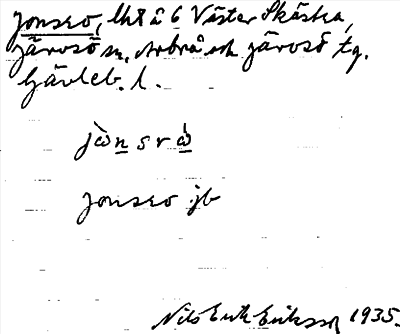 Jonsro, lht å 6 Väster Skästra,
Järvsö sn, Arbrå och Järvsö tg.
Gävleb. l.
jὼnsrὼ
Jonsro jb
Nils Erik Eriksson 1935.